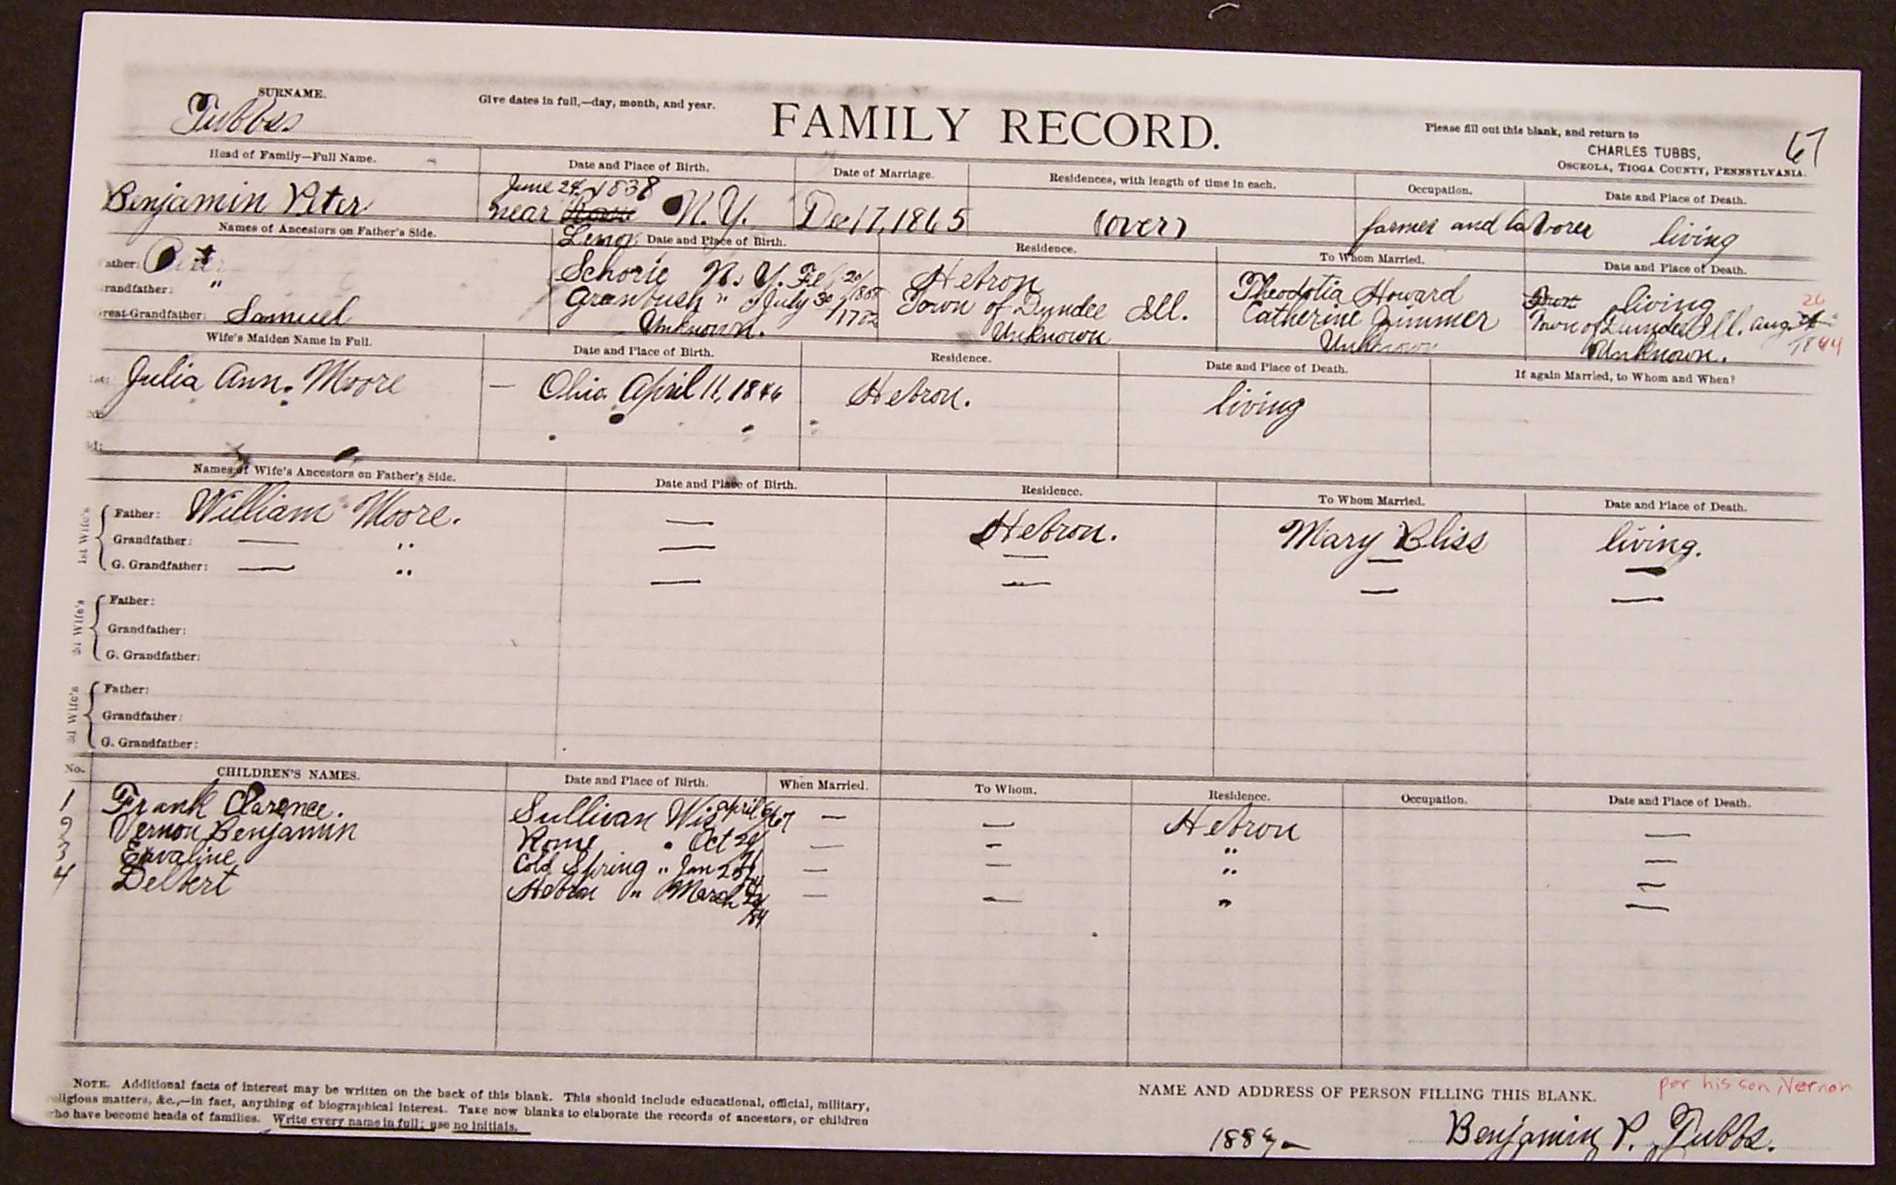 SURNAME.
Tubbs
Give dates in full,—day, month, and year.
FAMILY RECORD.
Please fill out this blank, and return to
CHARLES TUBBS,
OSCEOLA, TIOGA COUNTY, PENNSYLVANIA.
67
Head of Family—Full Name. Date and Place of Birth. Date of Marriage. Residences, with length of time in each. Occupation. Date and Place of Death.
June 24, 1838
Benjamin Peter near N.Y. Dec 17, 1865 (over) farmer and laborer living
Names of Ancestors on Father's Side. Date and Place of Birth. Residence. To Whom Married. Date and Place of Death.
ather: Schorie N. Y. Hebron Theodotia Howard living
randfather: " " July 30 Town of Dundee Ill. Catherine Zimmer Town of Dundee Ill. Aug. 26
reat-Grandfather: Samuel Unknown. Unknown Unknown Unknown.
Wife's Maiden Name in Full. Date and Place of Birth. Residence. Date and Place of Death. If again Married, to Whom and When?
Julia Ann. Moore — Ohio April 11, 1846 Hebron. living
Names of Wife's Ancestors on Father's Side. Date and Place of Birth. Residence. To Whom Married. Date and Place of Death.
1st Wife's
Father: William Moore. — Hebron. Mary Bliss living.
Grandfather: — " — — — —
G. Grandfather: — " — — — —
2d Wife's
Father:
Grandfather:
G. Grandfather:
3d Wife's
Father:
Grandfather:
G. Grandfather:
No. CHILDREN'S NAMES. Date and Place of Birth. When Married. To Whom. Residence. Occupation. Date and Place of Death.
1 Frank Clarence. Sullivan Wis April 6/67 — — Hebron —
2 Vernon Benjamin Rome " Oct — - " —
3 Cold Spring " Jan — " —
4 Delbert Hebron " March /84 — — " —
NOTE. Additional facts of interest may be written on the back of this blank. This should include educational, official, military,
eligious matters, &c.,—in fact, anything of biographical interest. Take new blanks to elaborate the records of ancestors, or children
who have become heads of families. Write every name in full; use no initials.
NAME AND ADDRESS OF PERSON FILLING THIS BLANK.
per his son, Vernon
Benjamin P. Tubbs.